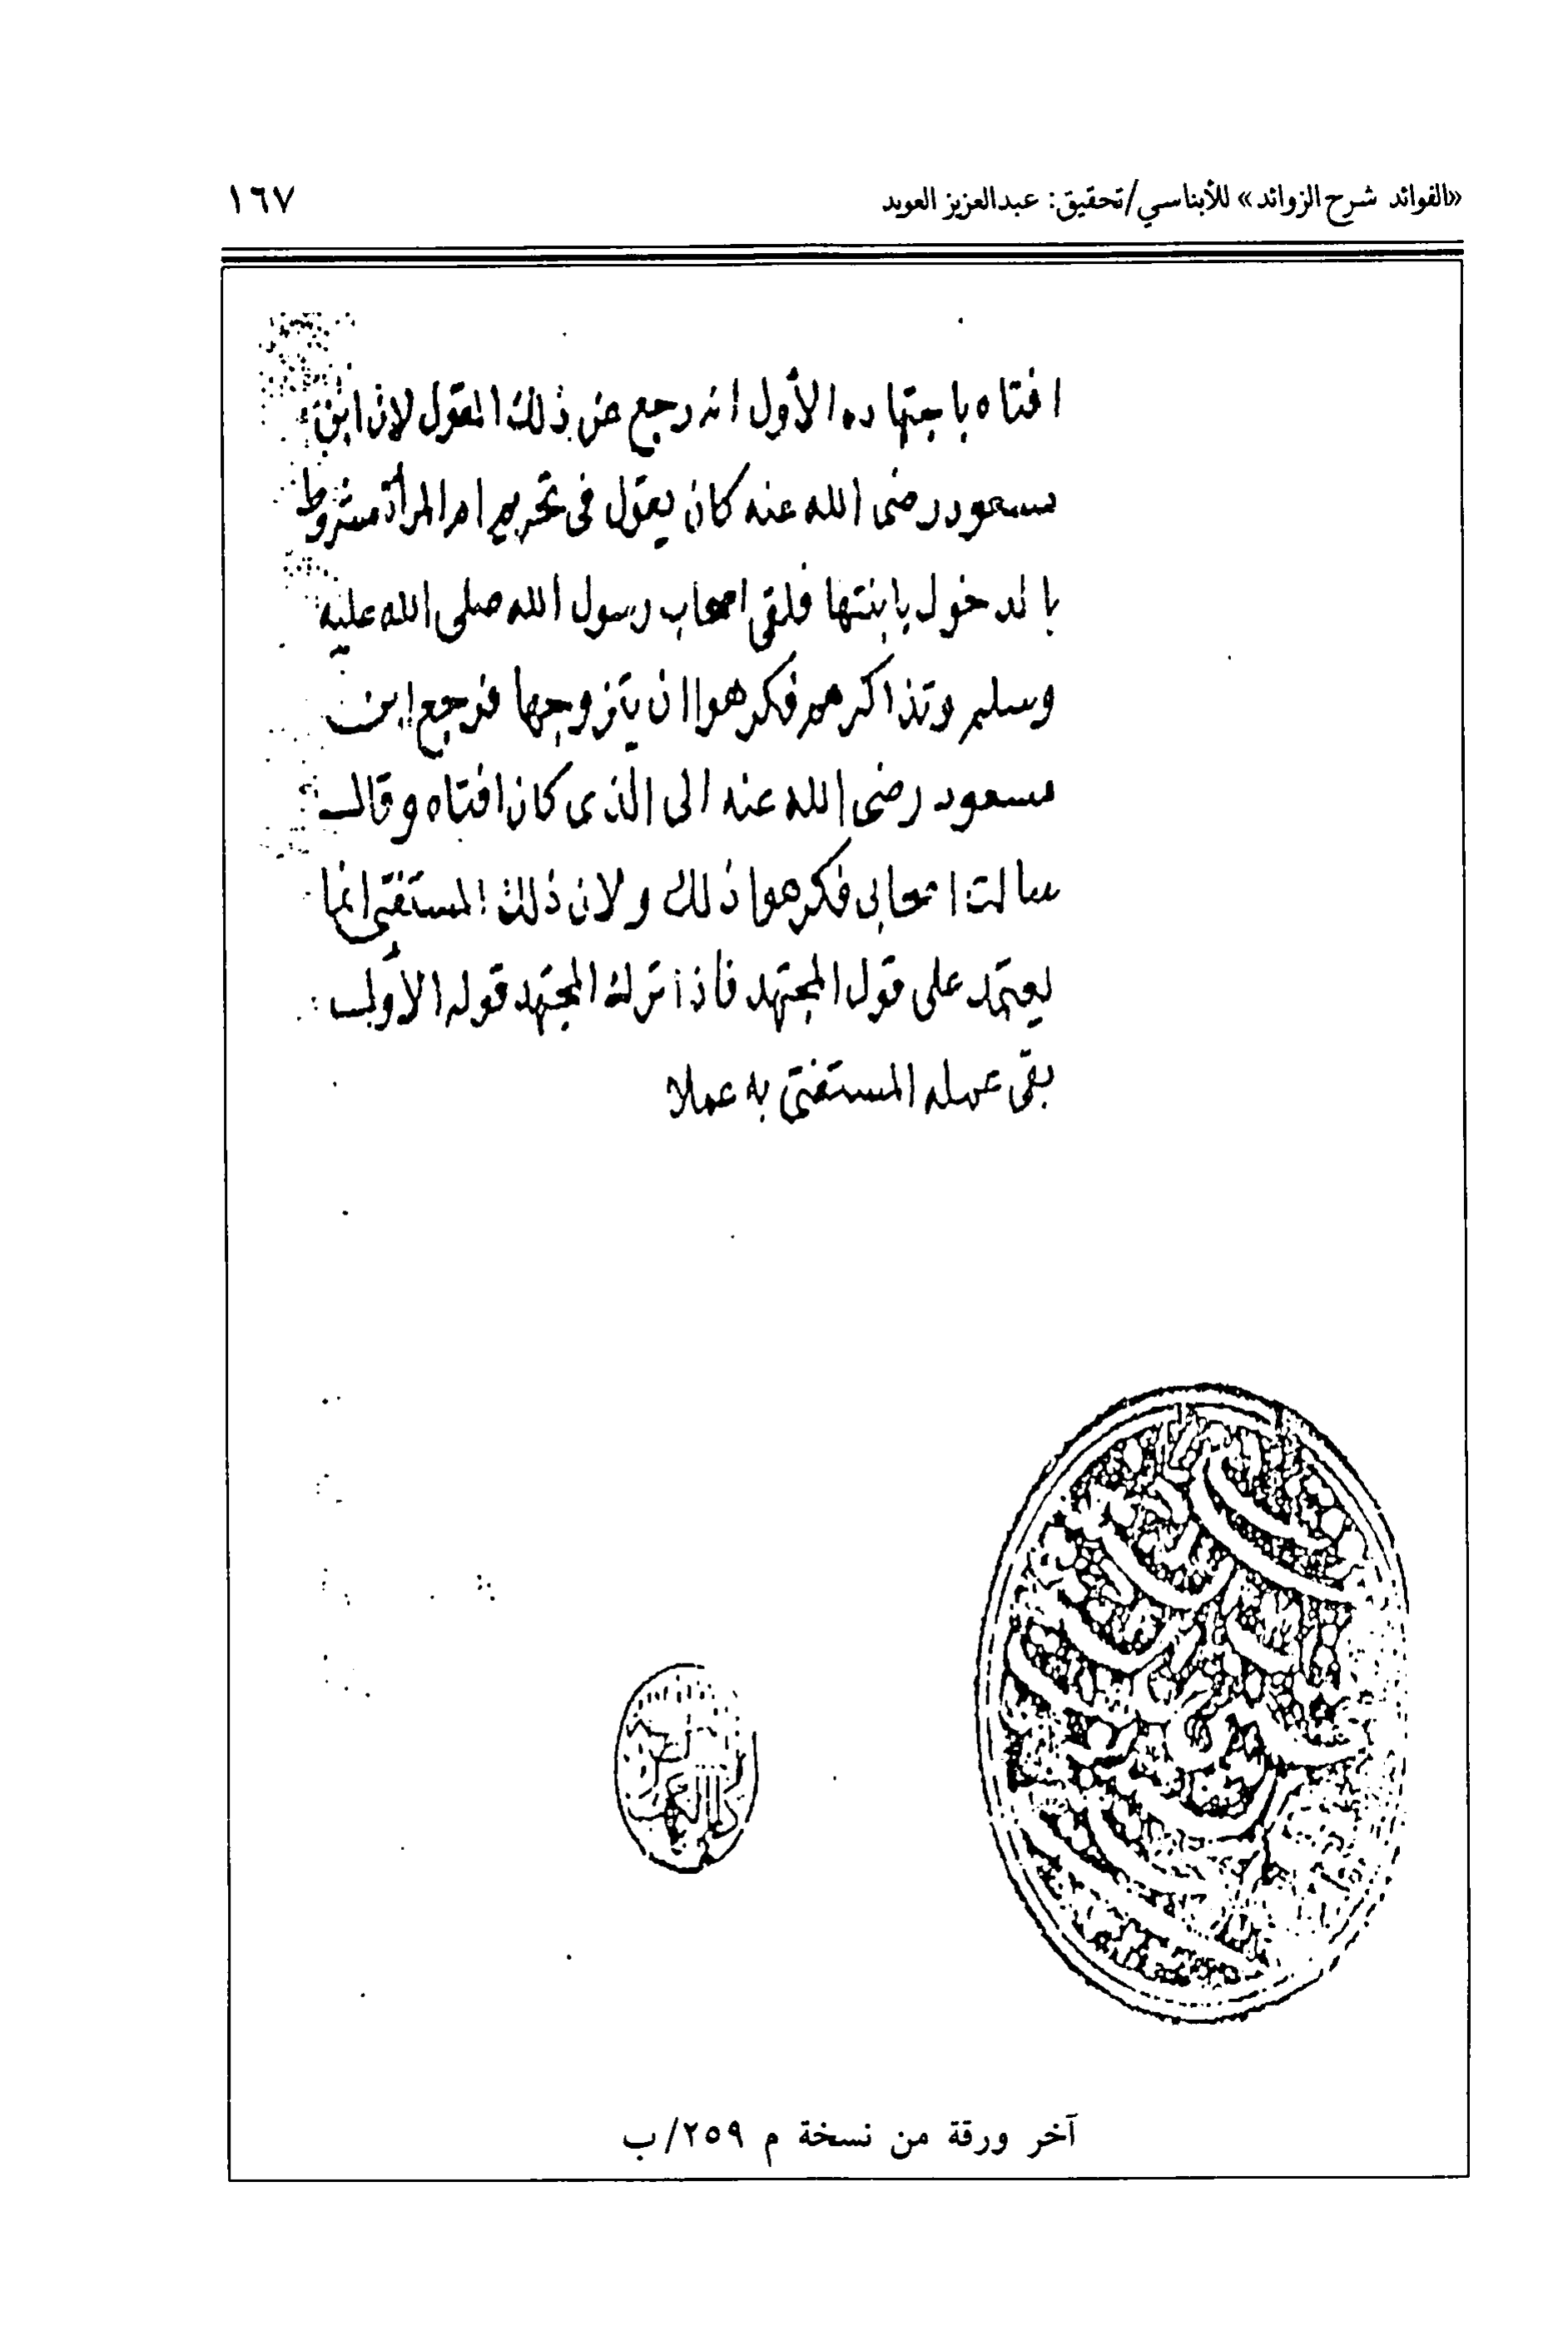 «الفوائد شرح الزوائد» للأبناسي/تحقيق: عبدالعزيز العويد ١٦٧
افتاه باجتهاده الأول انه رجع عن ذلك القول لان ابن
مسعود رضى الله عنه كان يقول فى تحريم ام المرأة مشروط
بالدخول بابنتها فلقى اصحاب رسول الله صلى الله عليه
وسلم وتذاكرهم فكرهوا ان يتزوجها فرجع ابن
مسعود رضى الله عنه الى الذى كان افتاه وقال
سالت اصحابى فكرهوا ذلك ولان ذلك المستفتى انما
يعتمد على قول المجتهد فاذا ترك المجتهد قوله الاول
بقى عمله المستفتى به عملا
آخر ورقة من نسخة م ٢٥٩/ب